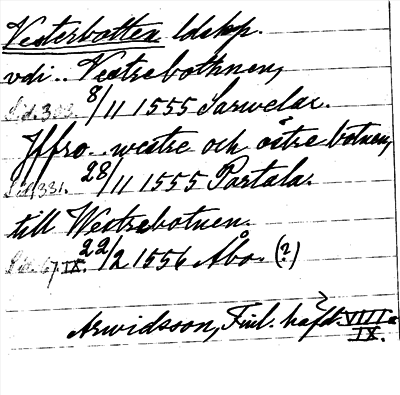 Vesterbotten ldskp.
vdi .. Vestrebothnen,
S.d. 303. 8/11 1555 Sarwelax.
Jffro .. westre och östre botnen,
S.d. 331. 28/11 1555 Partala.
till Westrebotnen.
S.d. 67. IX. 22/2 1556 Åbo. (?)
Arwidsson, Finl. hafd. VIII.
IX.